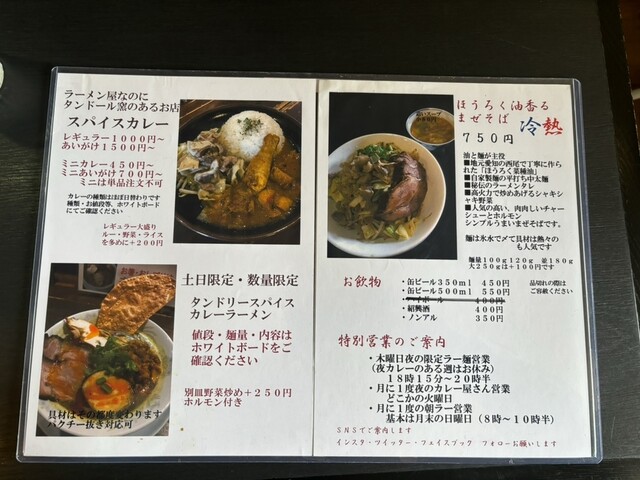 ラーメン屋なのに
タンドール窯のあるお店
スパイスカレー
レギュラー1000円~
あいがけ1500円~
ミニカレー450円~
ミニあいがけ700円~
ミニは単品注文不可
カレーの種類はほぼ日替わりです
種類・お値段等、ホワイトボード
にてご確認ください
レギュラー大盛り
ルー・野菜・ライス
を多めに+200円
土日限定・数量限定
タンドリースパイス
カレーラーメン
値段・麺量・内容は
ホワイトボードをご
確認ください
別皿野菜炒め+250円
ホルモン付き
具材はその都度変わります
パクチー抜き対応可
ほうろく油香る
まぜそば 冷熱
750円
油と麺が主役
■地元愛知の西尾で丁寧に作ら
れた「ほうろく菜種油」
■自家製麺の平打ち中太麺
■秘伝のラーメンタレ
■高火力で炒めあげるシャキシ
ャキ野菜
■人気の高い、肉肉しいチャー
シューとホルモン
シンプルうまいまぜそばです。
麺は氷水で〆て具材は熱々の
も人気です
麺量100g120g 並180g
大250gは+100円です
お飲物
・缶ビール350ml 450円
・缶ビール500ml 550円
・ハイボール 400円
・紹興酒 400円
・ノンアル 350円
品切れの際は
ご容赦ください
特別営業のご案内
・木曜日夜の限定ラー麺営業
(夜カレーのある週はお休み)
18時15分~20時半
・月に1度夜のカレー屋さん営業
どこかの火曜日
・月に1度の朝ラー営業
基本は月末の日曜日(8時~10時半)
SNSでご案内します
インスタ・ツイッター・フェイスブック フォローお願いします